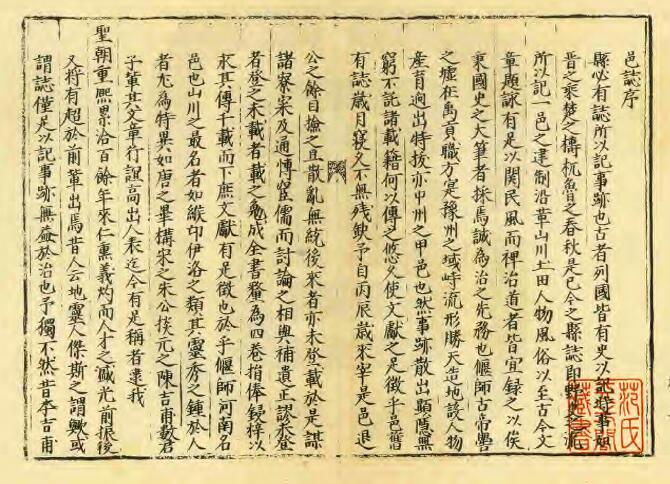 邑誌序
縣必有誌所以記事跡也古者列國皆有史以記時事
晋之乘楚之檮杌魯之春秋是已今之縣誌即
所以記一邑之建制沿革山川土田人物風俗以至古今文
章題詠有足以関民風而裨治道者皆宜録之以俟
秉國史之大筆者採焉誠為治之先務也偃師古帝嚳
之墟在禹貢職方寔豫州之域峙流形勝天造地設人物
産育逈出特拔亦中州之甲邑也然事跡散出顯隱無
窮不託諸載籍何以傳之悠久使文獻之足徵乎邑舊
有誌歳月寖久不無殘缺予自丙辰歳來宰是邑退
公之餘目撿之且散亂無統後來者亦未登載於是謀
諸寮寀及通博宦儒而討論之相與補遺正謬未登
者登之未載者載之免成全書釐為四卷捐俸鋟梓以
求其傳千載而下庶文獻有足徵也於乎偃師河南名
邑也山川之最名者如緱邙伊洛之類其靈秀之鍾於人
者尤為特異如唐之畢構宋之朱公掞元之陳吉甫數君
子軰其文章行誼高出人表迄今有足稱者逮我
聖朝重熈累洽百餘年來仁熏義灼而人才之盛光前振後
又將有超於前軰出焉昔人云地靈人傑斯之謂歟或
謂誌僅足以記事跡無益於治也予獨不然昔李吉甫
范氏